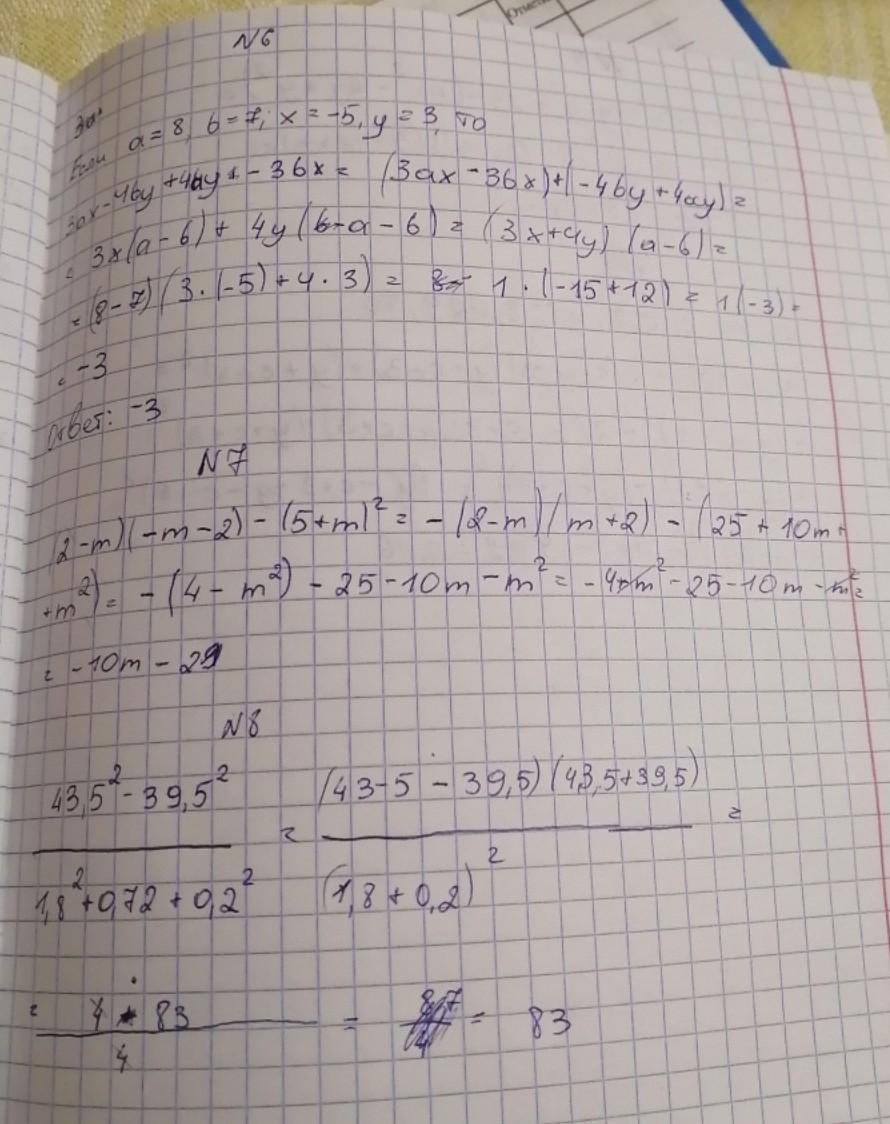 N6
Если a = 8, b = 7, x = -5, y = 3, то
3ax - 4by + 4ay - 3bx = (3ax - 3bx) + (-4by + 4ay) =
= 3x(a - b) + 4y(b-a - b) = (3x+4y) (a-b) =
= (8-7) (3·(-5) + 4·3) = 1·(-15+12) = 1(-3) =
= -3
Ответ: -3
N7
(2-m)(-m-2) - (5+m)² = -(2-m)(m+2) - (25 + 10m +
+m²) = -(4 - m²) - 25 - 10m - m² = -4+m² - 25 - 10m - m² =
= -10m - 29
N8
43,5² - 39,5² (43-5 - 39,5)(43,5+39,5)
= =
1,8² + 0,72 + 0,2² (1,8 + 0,2)²
= 4 · 83 = = 83
4